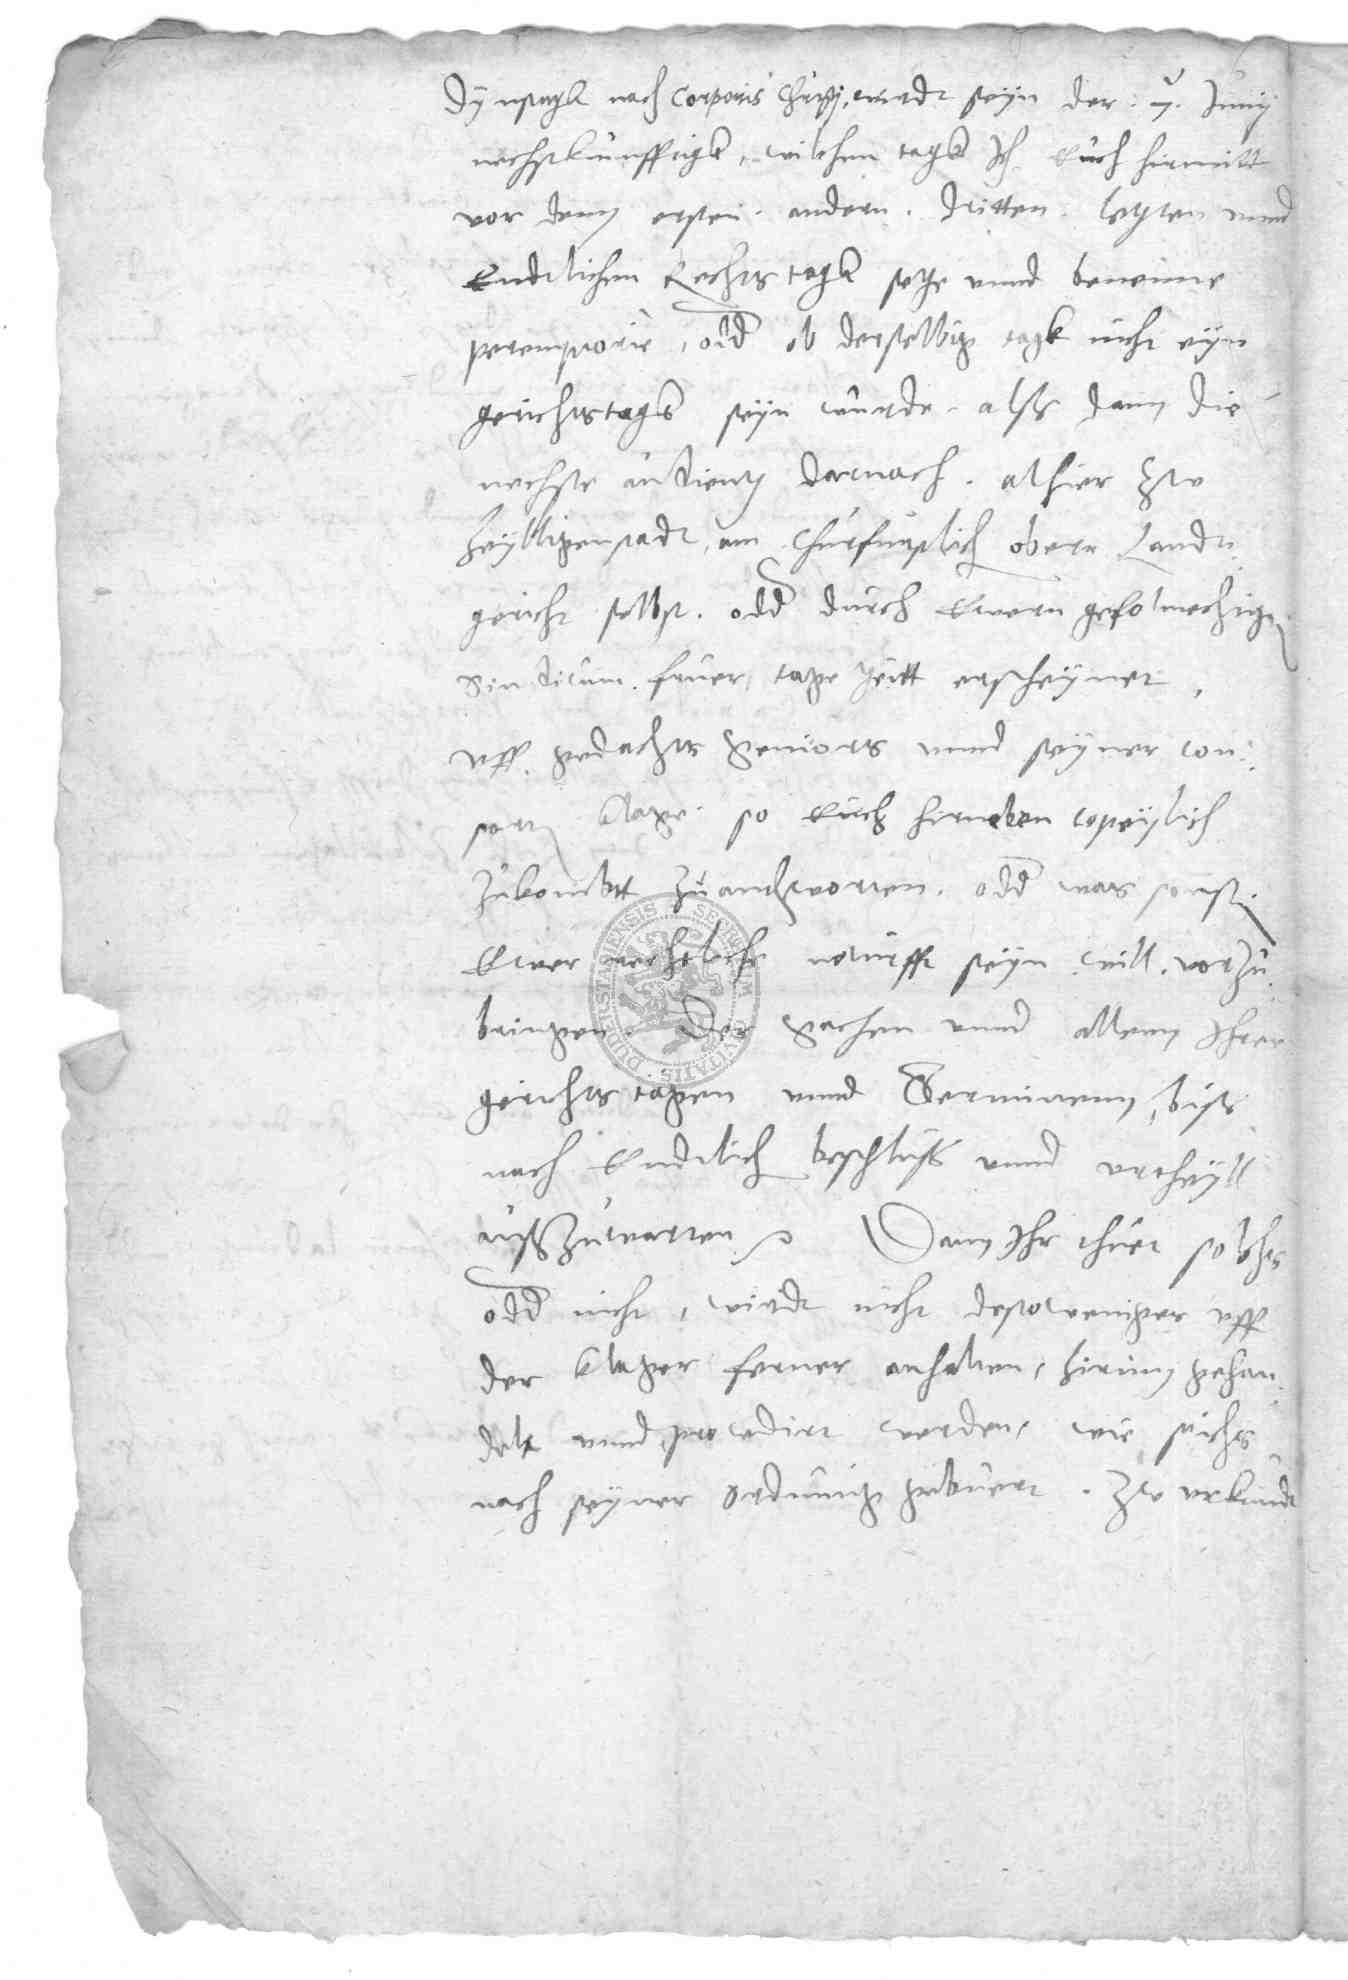 Dÿnstagk nach Corporis Christj, wirdt seÿn der .7. Junij
nechstkunfftigk, wilchen tagk Jch Euch hirmitt
vor denn ersten. andern. dritten. letzten unnd
Endtlichen Rechtstagk setze unnd benenne
peremptorie, odd ob derselbig tagk nicht eÿn
gerichtstagk seÿn wurde. alss dann die
nechste audientz darnach. alhier Zw
heÿlligenstadt, am Churfurstlich obern Landt:
gericht selbst. odd durch Ewern gefolmechtigen
Sindicum. fruer tage Zeitt erscheÿnet,
uff gedachts Seniors unnd seÿner con:
sorten klage so Euch hirneben copeÿlich
Zukombtt Zuandtworten. odd was sonst
Ewer rechtliche noturfft seÿn will. vorzu:
bringen. Der Sachen unnd allenn Jhren
gerichts tagen unnd Terminenn, biss
nach Endtlich beschluss unnd urtheÿll
ausszuwarten Dann Jhr thuet solchs
odd nicht, wirdt nicht destoweniger uff
der klager ferner anhalten, hirinn gehan:
delt unnd procedirt werden, wie sichs
nach seÿner Ordnung gebuert. Zw urkundt
SECRETUM CIVITATIS DUDERSTADIENSIS